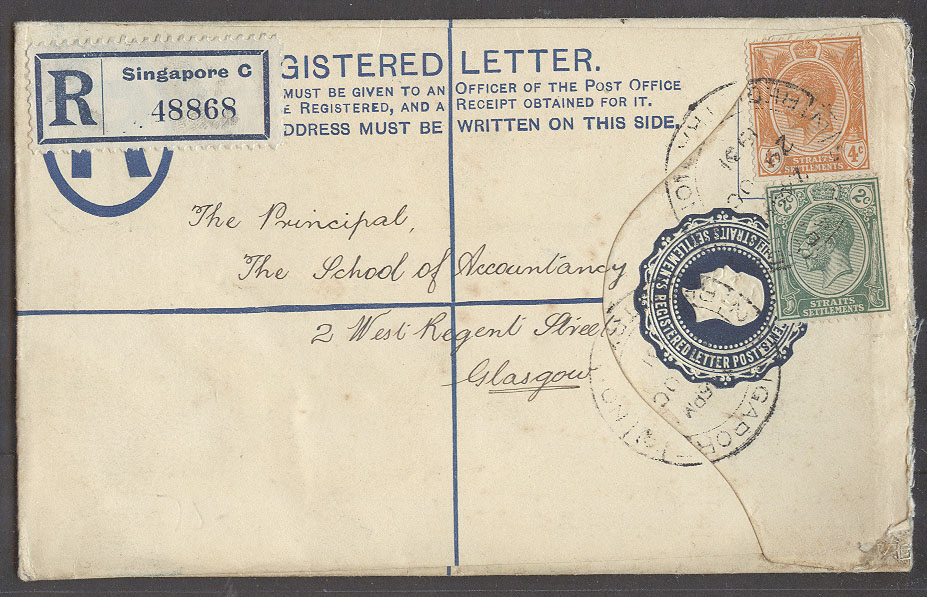 R Singapore C
48868
GISTERED LETTER.
MUST BE GIVEN TO AN OFFICER OF THE POST OFFICE
REGISTERED, AND A RECEIPT OBTAINED FOR IT.
DDRESS MUST BE WRITTEN ON THIS SIDE.
The Principal,
The School of Accountancy
2 West Regent Street
Glasgow
4c
STRAITS
SETTLEMENTS
2c 2c
STRAITS
SETTLEMENTS
STRAITS SETTLEMENTS REGISTERED LETTER POSTAGE